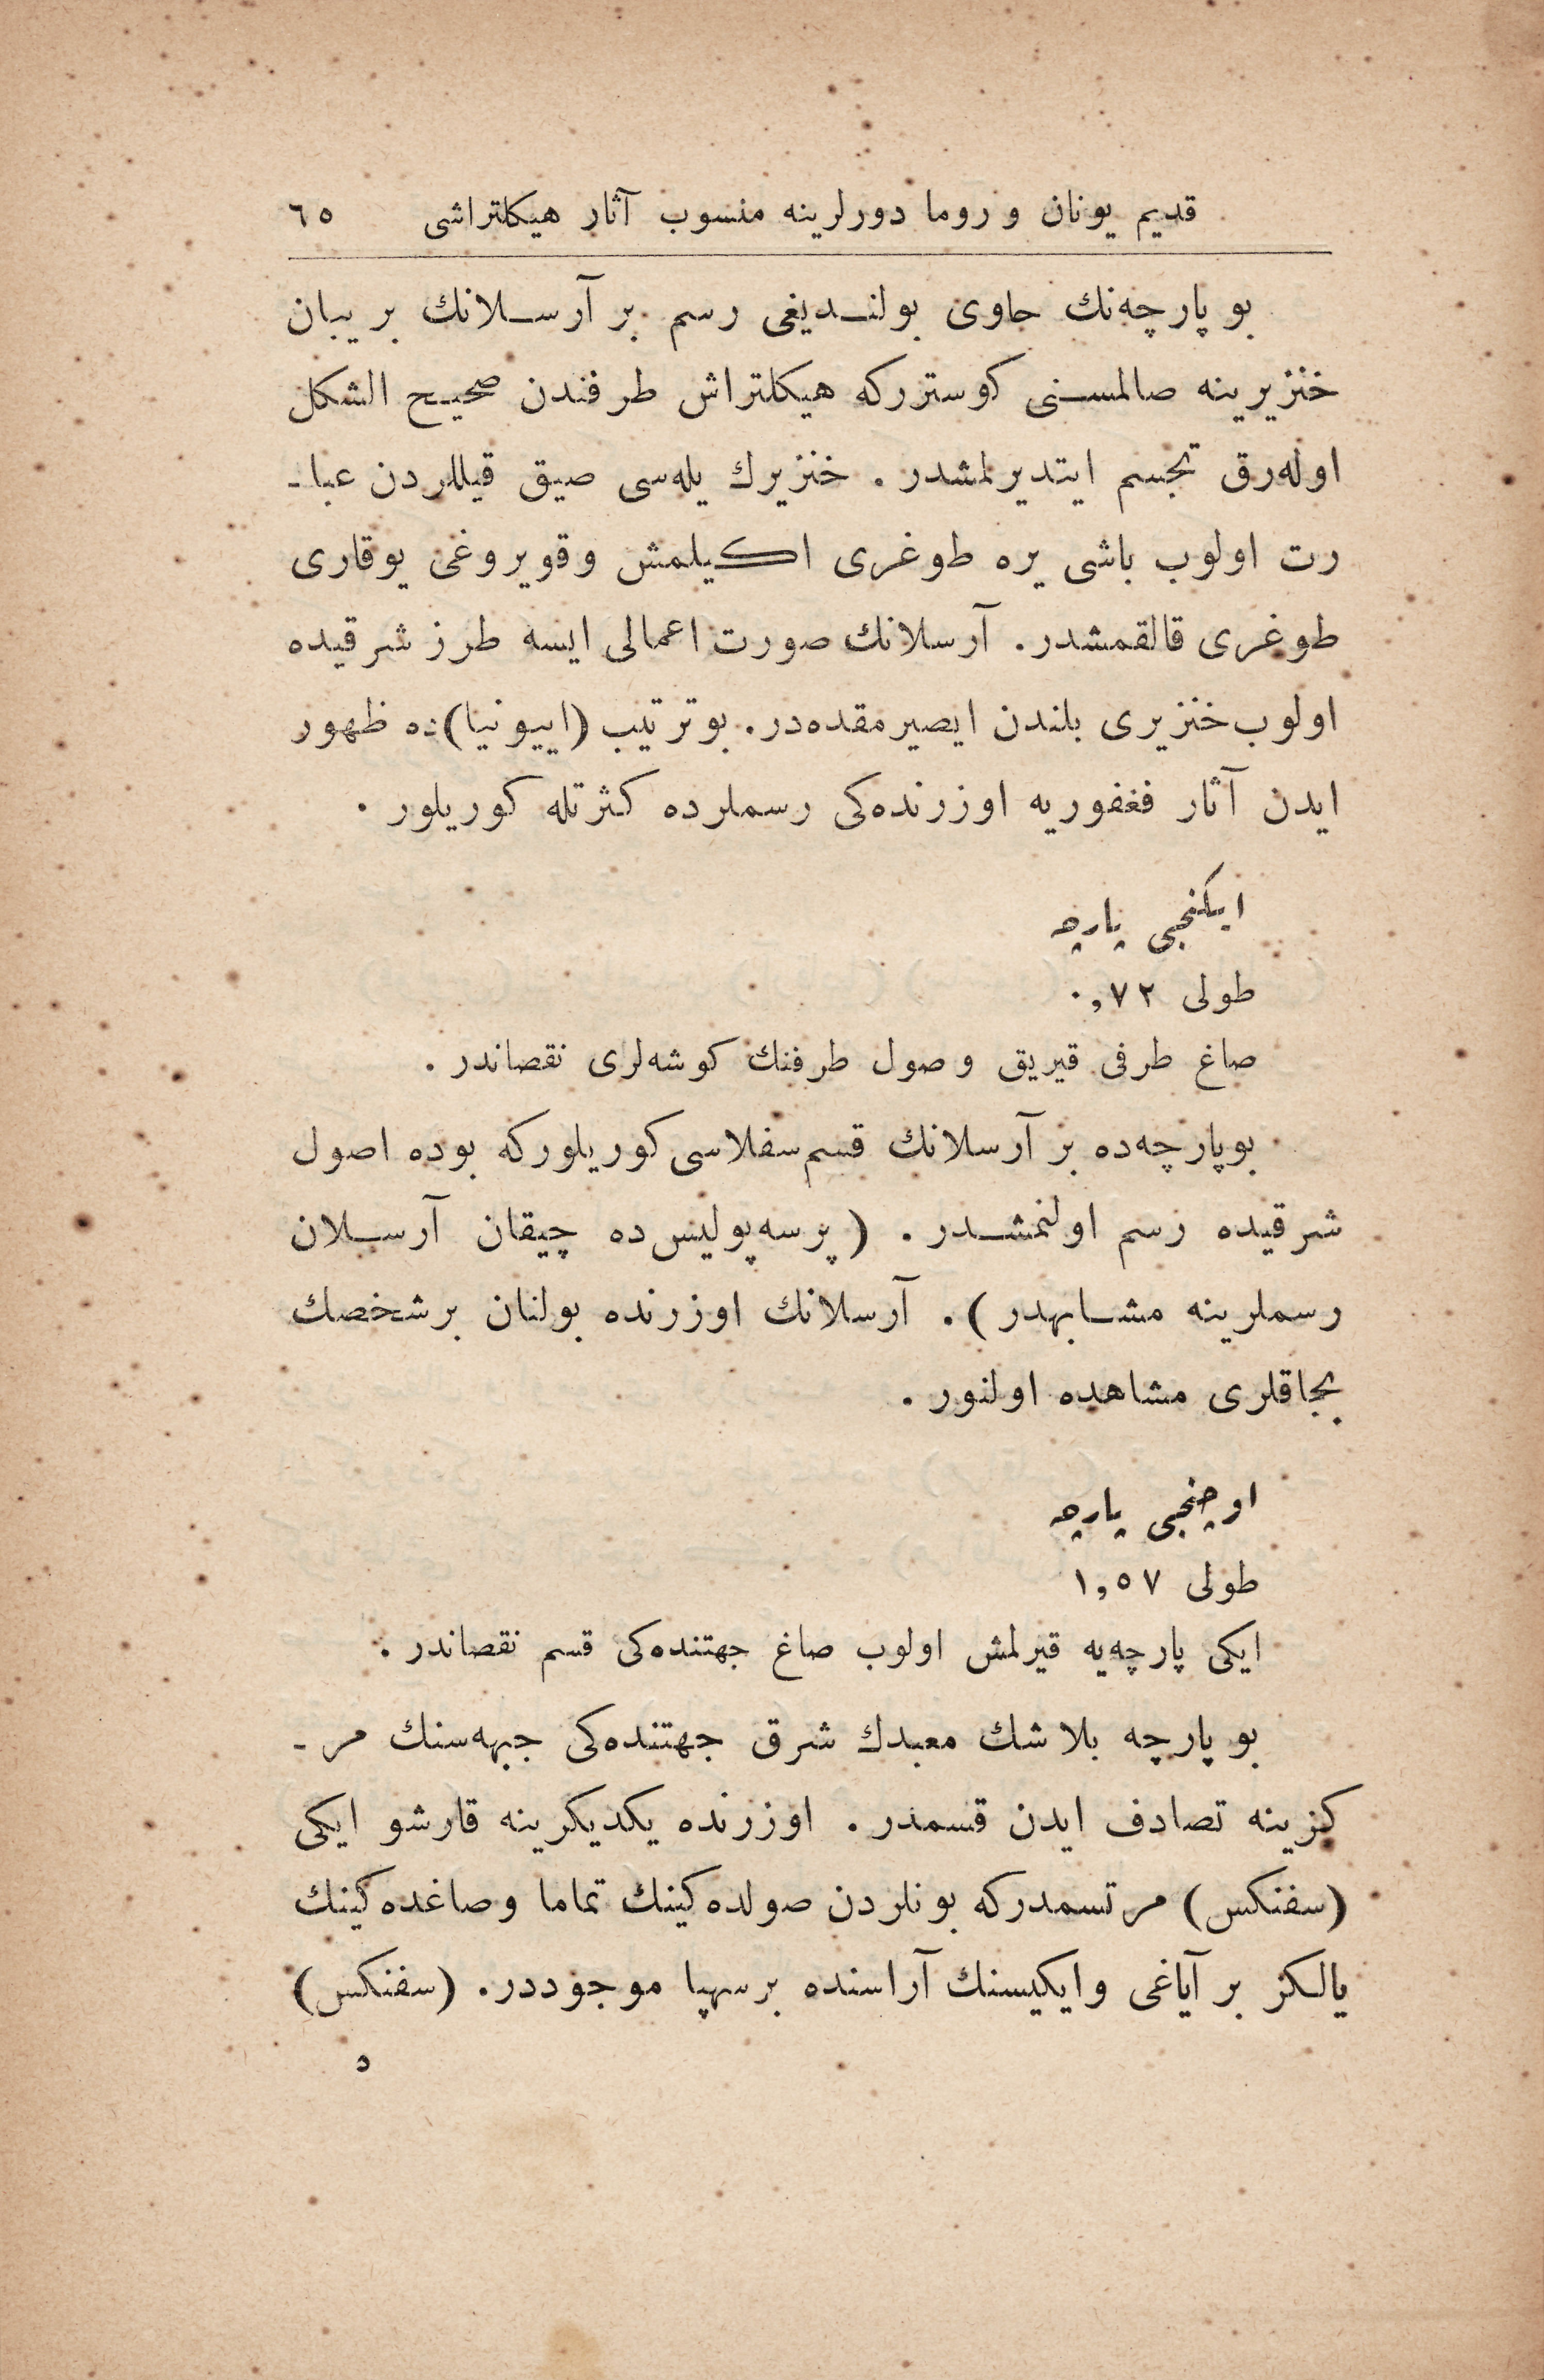 قديم يونان و روما دورلرينه منسوب آثار هيكلتراشى ٦٥
بو پارچه‌نك حاوى بولنـديغى رسم بر آرسـلانك بر يبان
خنزيرينه صالمسـنى كوستررکه هيكلتراش طرفندن صحيـح الشكل
اوله‌رق تجسم ايتديرلمشدر . خنزيرك يله‌سى صيق قيللردن عبا-
رت اولوب باشى يره طوغرى اكيلمش وقويروغى يوقارى
طوغرى قالقمشدر . آرسلانك صورت اعمالى ايسه طرز شرقيده
اولوب خنزيرى بلندن ايصيرمقده‌در . بوترتيب (اييونيا)ده ظهور
ايدن آثار فغفوريه اوزرنده‌كى رسملرده كثرتله كوريلور .
ايكنجى پارچه
طولى ٠,٧٢
صاغ طرفى قيريق وصول طرفنك كوشه‌لرى نقصاندر .
بوپارچه‌ده بر آرسلانك قسم‌سفلاسى كوريلوركه بوده اصول
شرقيده رسم اولنمشـدر . (پرسه‌پوليس‌ده چيقان آرسـلان
رسملرينه مشـابهدر) . آرسلانك اوزرنده بولنان برشخصك
بجاقلرى مشاهده اولنور .
اوچنجى پارچه
طولى ١,٥٧
ايكى پارچه‌يه قيرلمش اولوب صاغ جهتنده‌كى قسم نقصاندر .
بو پارچه بلاشك معبدك شرق جهتنده‌كى جبهه‌سنك مر-
كزينه تصادف ايدن قسمدر . اوزرنده يكديكرينه قارشو ايكى
(سفنكس) مرتسمدركه بونلردن صولده‌كينك تماما وصاغده‌كينك
يالكز بر آياغى وايكيسنك آراسنده برسهپا موجوددر . (سفنكس)
٥